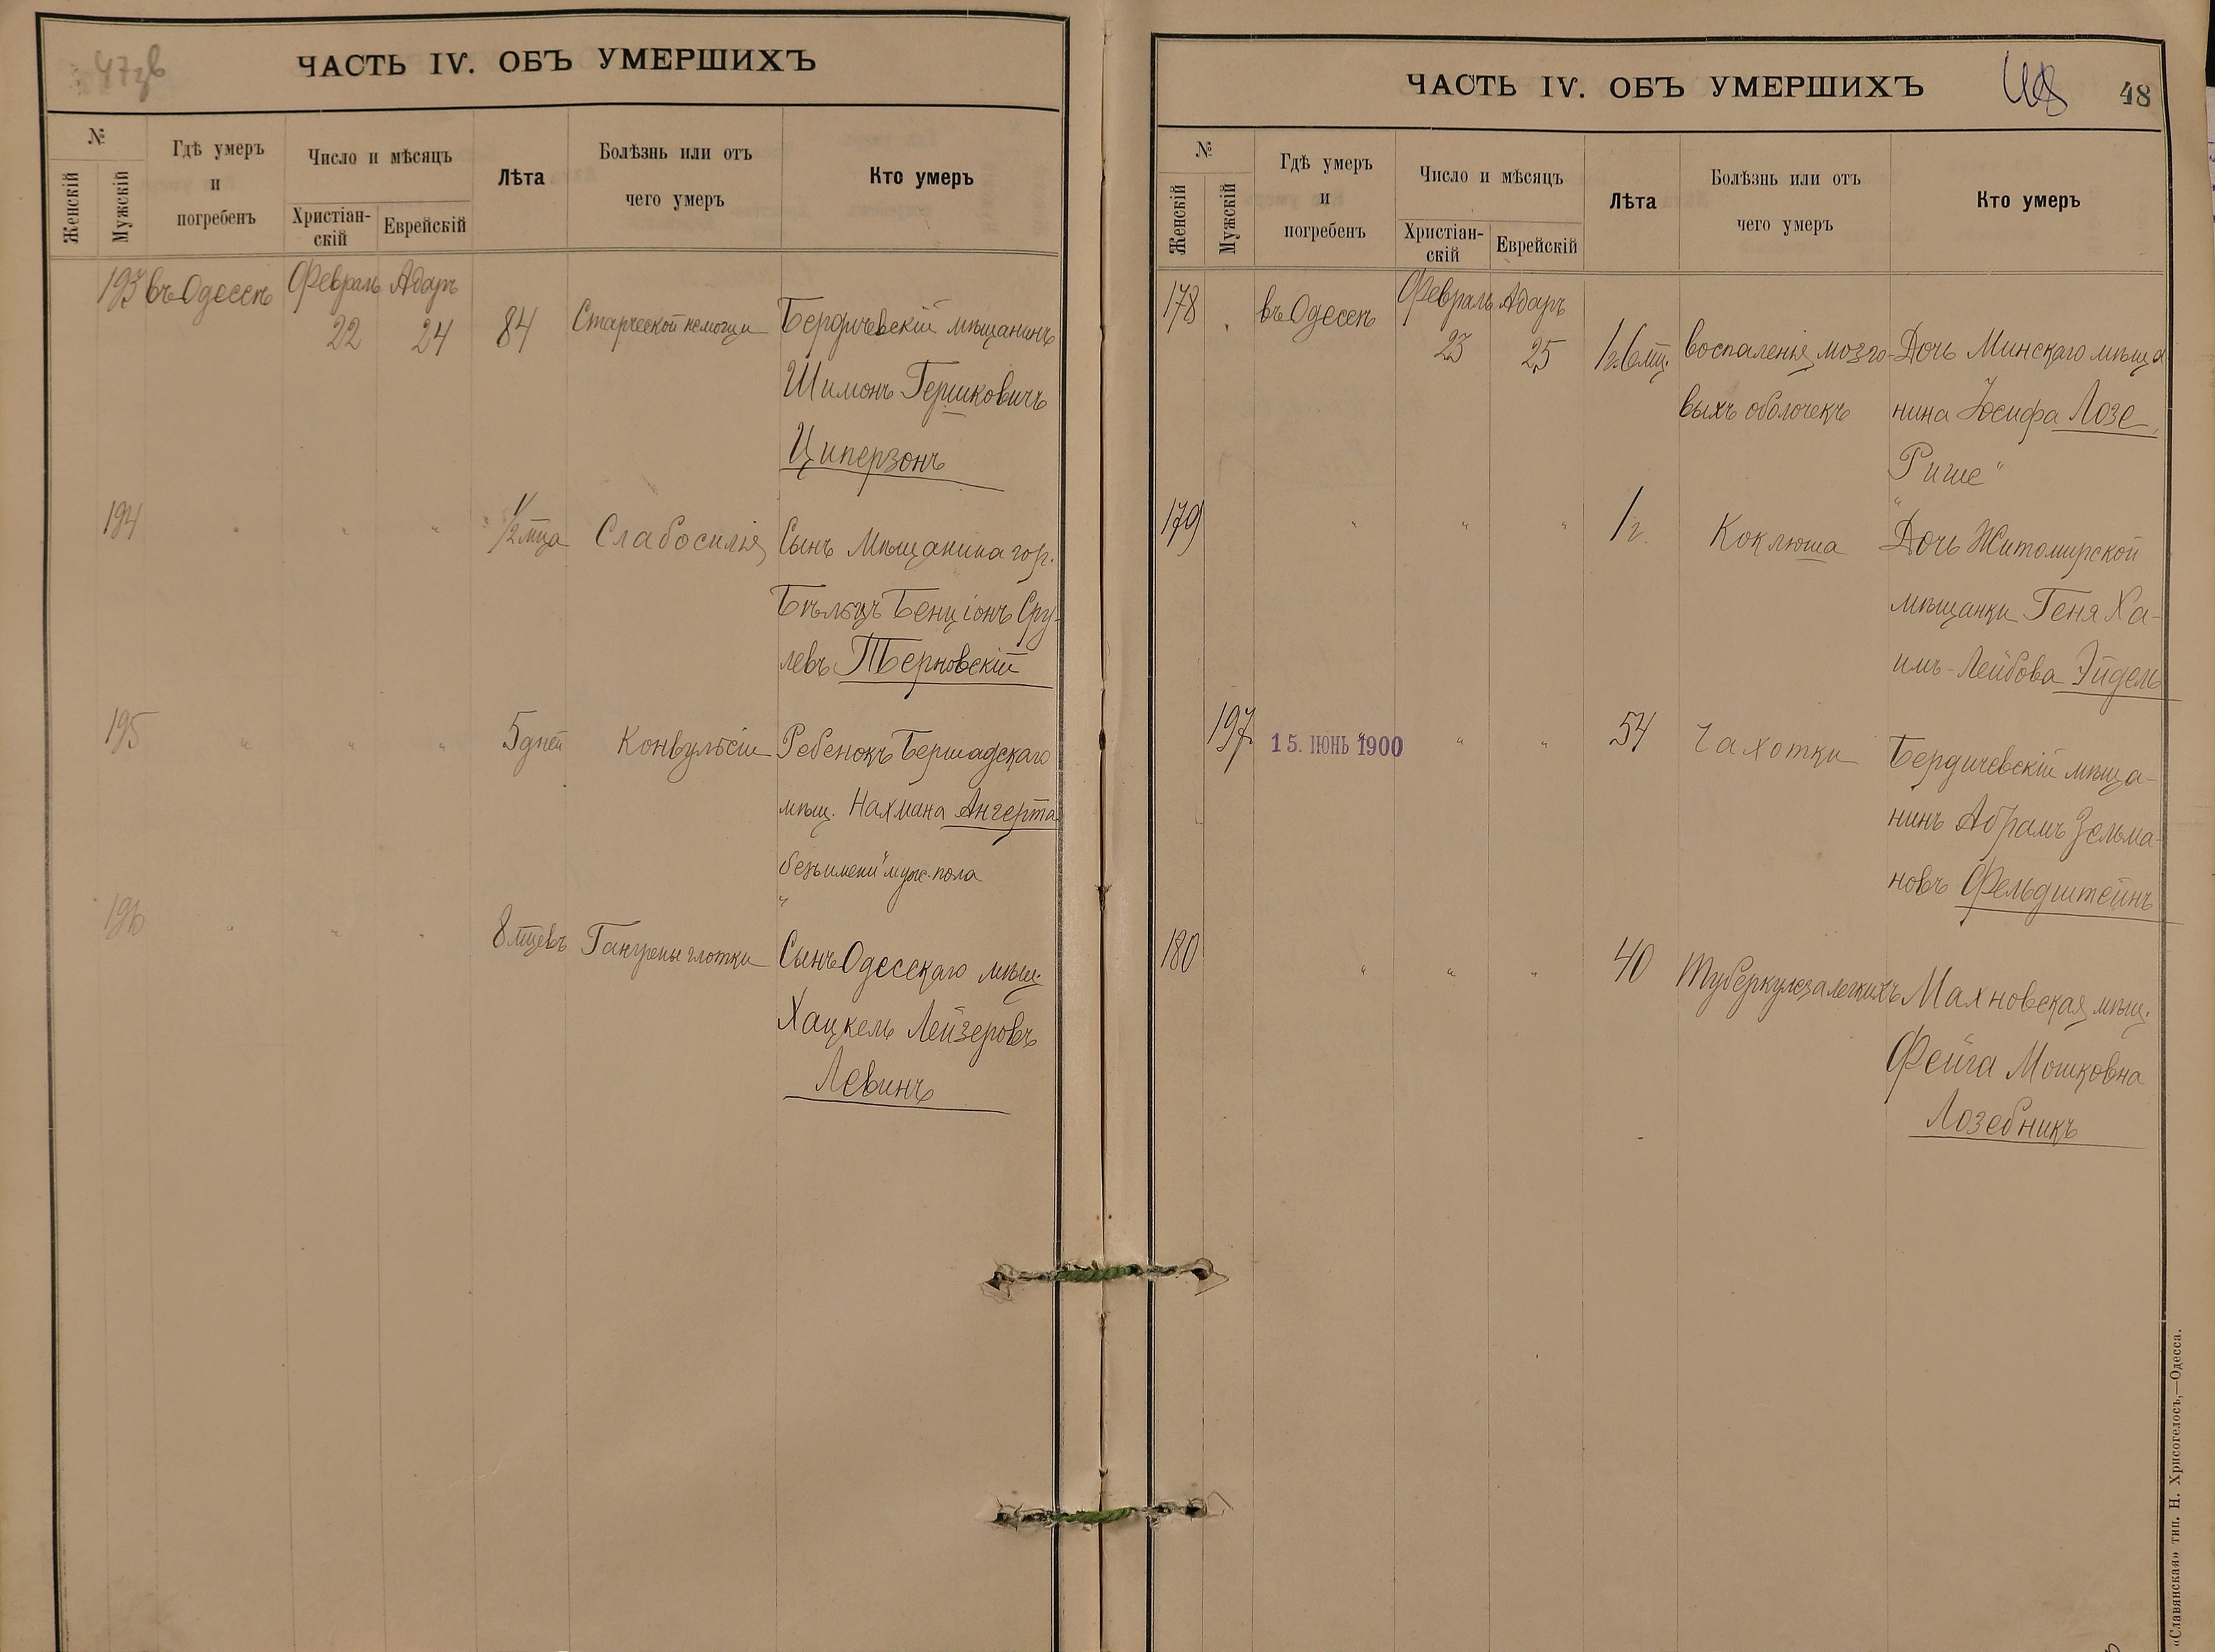 47зв
ЧАСТЬ IV. ОБЪ УМЕРШИХЪ
№
Женскій
Мужскій
Гдѣ умеръ
и
погребенъ
Число и мѣсяцъ
Христіан-
скій
Еврейскій
Лѣта
Болѣзнь или отъ
чего умеръ
Кто умеръ
193 въ Одессѣ Февраль Адаръ
22 24 84 Старческой немощи Бердичевскій мѣщанинъ
Шимонъ Гершковичъ
Циперзонъ
194 " " " 1/2 мца Слабосилія Сынъ Мѣщанина гор.
Бѣльцъ Бенціонъ Сру-
левъ Терновскій
195 " " " 5 дней Конвульсіи Ребенокъ Бершадскаго
мѣщ. Нахмана Ангерта
безъ имени муж. пола
196 " " " 8 мцевъ Гангрены глотки Сынъ Одесскаго мѣщ.
Хацкель Лейзеровъ
Левинъ
ЧАСТЬ IV. ОБЪ УМЕРШИХЪ
48
№
Женскій
Мужскій
Гдѣ умеръ
и
погребенъ
Число и мѣсяцъ
Христіан-
скій
Еврейскій
Лѣта
Болѣзнь или отъ
чего умеръ
Кто умеръ
178 въ Одессѣ Февраль Адаръ
23 25 1 г. 6 мц. воспаленія мозго- Дочь Минскаго мѣща
выхъ оболочекъ нина Іосифа Лозе
"Рише"
179 " " " 1 г. Коклюша Дочь Житомирской
мѣщанки Геня Ха-
имъ-Лейбова Эйдель
197 15. ІЮНЬ 1900 " " " 54 Чахотки Бердичевскій мѣща-
нинъ Абрамъ Зельма-
новъ Фельдштейнъ
180 " " " 40 Туберкулеза легкихъ Махновская мѣщ.
Фейга Мошковна
Лозебникъ
«Славянская» тип. Н. Хрисогелосъ,—Одесса.